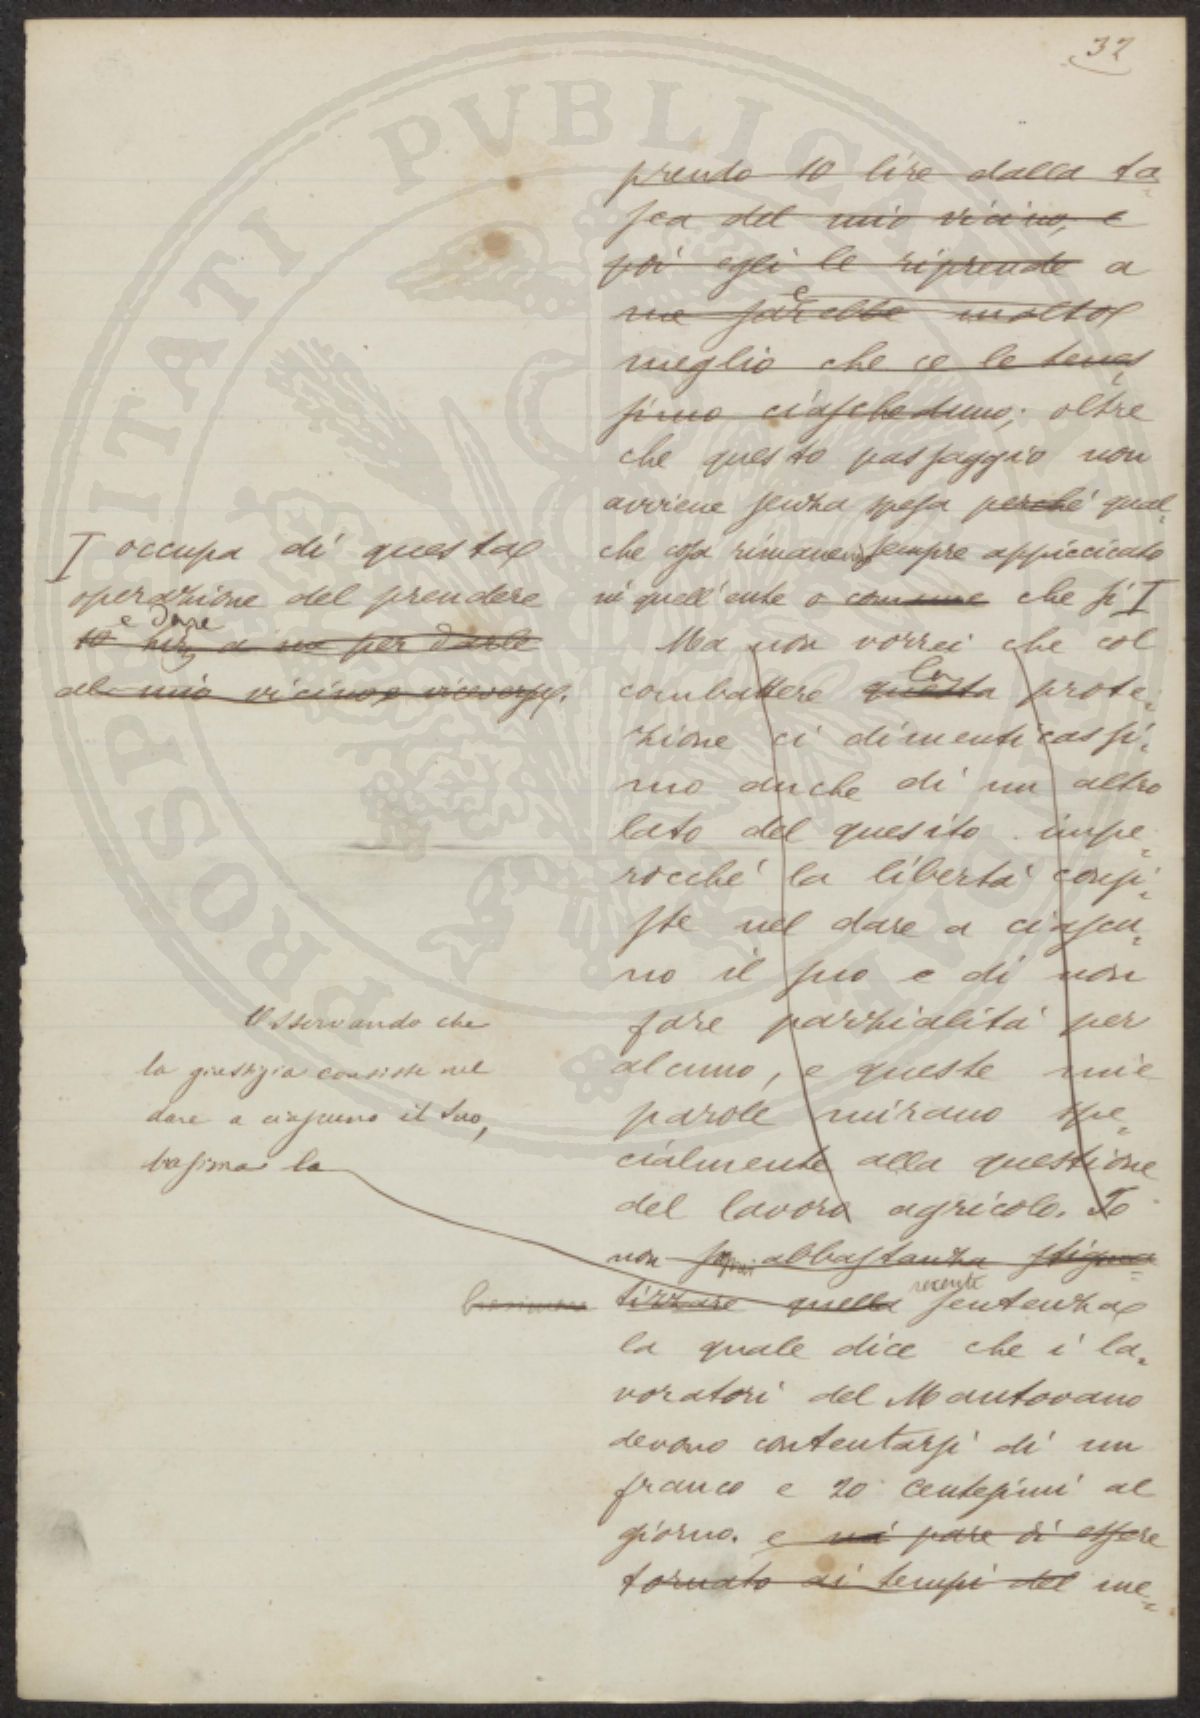 32
prendo 10 lire dalla ta=
sca del mio vicino, e
poi egli le riprende a
me sarebbe molto
meglio che ce le tenes
simo ciascheduno; oltre
che questo passaggio non
avviene senza spesa perché qual=
che cosa rimane sempre appiccicato
a quell'ente o comune che si I
I occupa di questa
operazione del prendere
e dare
10 lire a me per darle
al mio vicino e viceversa.
Ma non vorrei che col
combattere questa la prote=
zione ci dimenticassi=
mo anche di un altro
lato del quesito impe=
rocché la libertá consi=
ste nel dare a ciascu=
no il suo e di non
fare parzialitá per
alcuno, e queste mie
parole mirano spe=
cialmente alla questione
del lavoro agricolo. Io
Osservando che
la giustizia consiste nel
dare a ciascuno il suo,
biasima la
non abbastanza stigma=
tizzare quella recente sentenza
la quale dice che i la=
voratori del Mantovano
devono contentarsi di un
franco e 20 centesimi al
giorno. e mi pare di essere
tornato ai tempi del me=